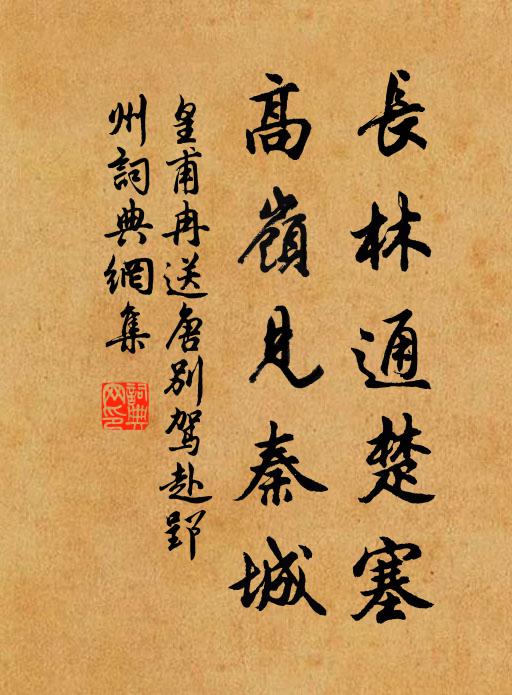 長林通楚塞
高嶺見秦城
皇甫冉送唐別駕赴郢
州詞典網集
詞典
网印